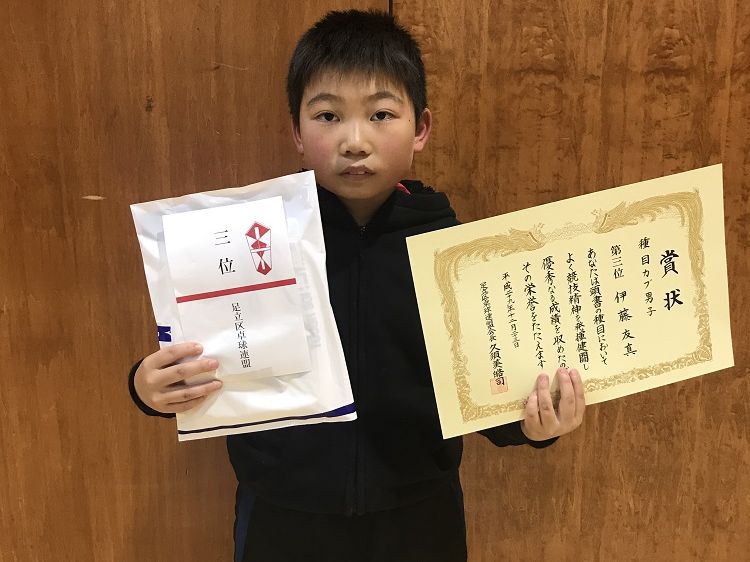 三位
足立区卓球連盟
賞状
種目カブ男子
第三位 伊藤友真
あなたは頭書の種目において
よく競技精神を発揮健闘し
優秀なる成績を収めたの
その栄誉をたたえます
平成二十九年十二月二十三日
足立区卓球連盟会長 久須美浩司